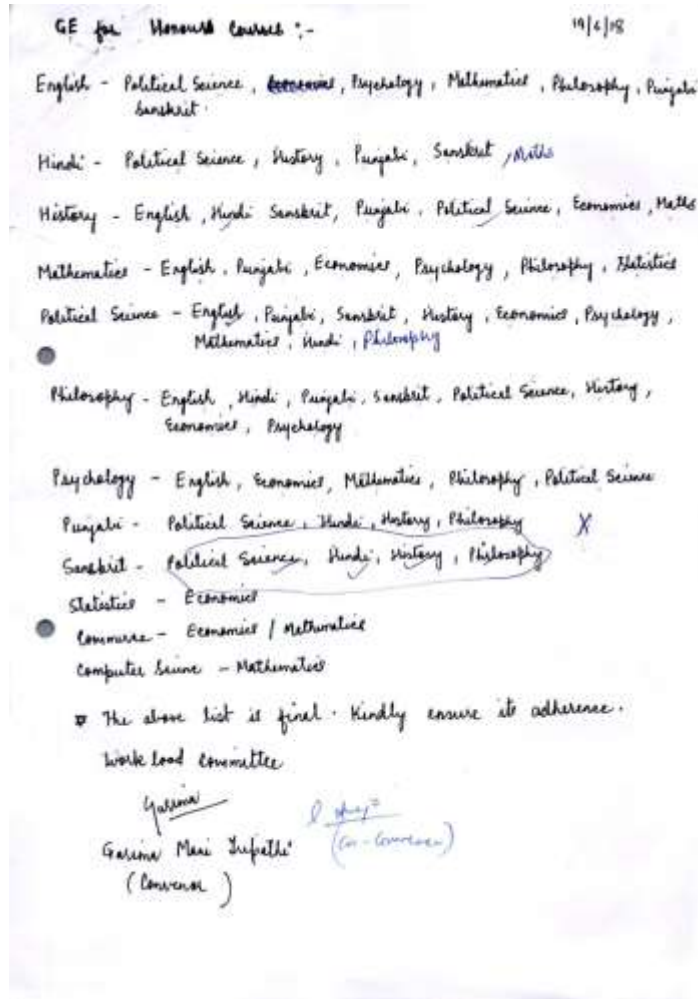 GE for Honours Courses :-
19/6/18
English - Political Science, Economics, Psychology, Mathematics, Philosophy, Punjabi
Sanskrit.
Hindi - Political Science, History, Punjabi, Sanskrit, Maths
History - English, Hindi Sanskrit, Punjabi, Political Science, Economics, Maths
Mathematics - English, Punjabi, Economics, Psychology, Philosophy, Statistics
Political Science - English, Punjabi, Sanskrit, History, Economics, Psychology,
Mathematics, Hindi, Philosophy
Philosophy - English, Hindi, Punjabi, Sanskrit, Political Science, History,
Economics, Psychology
Psychology - English, Economics, Mathematics, Philosophy, Political Science
Punjabi - Political Science, Hindi, History, Philosophy X
Sanskrit - Political Science, Hindi, History, Philosophy
Statistics - Economics
Commerce - Economics / Mathematics
Computer Science - Mathematics
The above list is final. Kindly ensure its adherence.
Work load Committee
Garima
Garima Mani Tripathi
(Co-Convenor)
(Convenor)